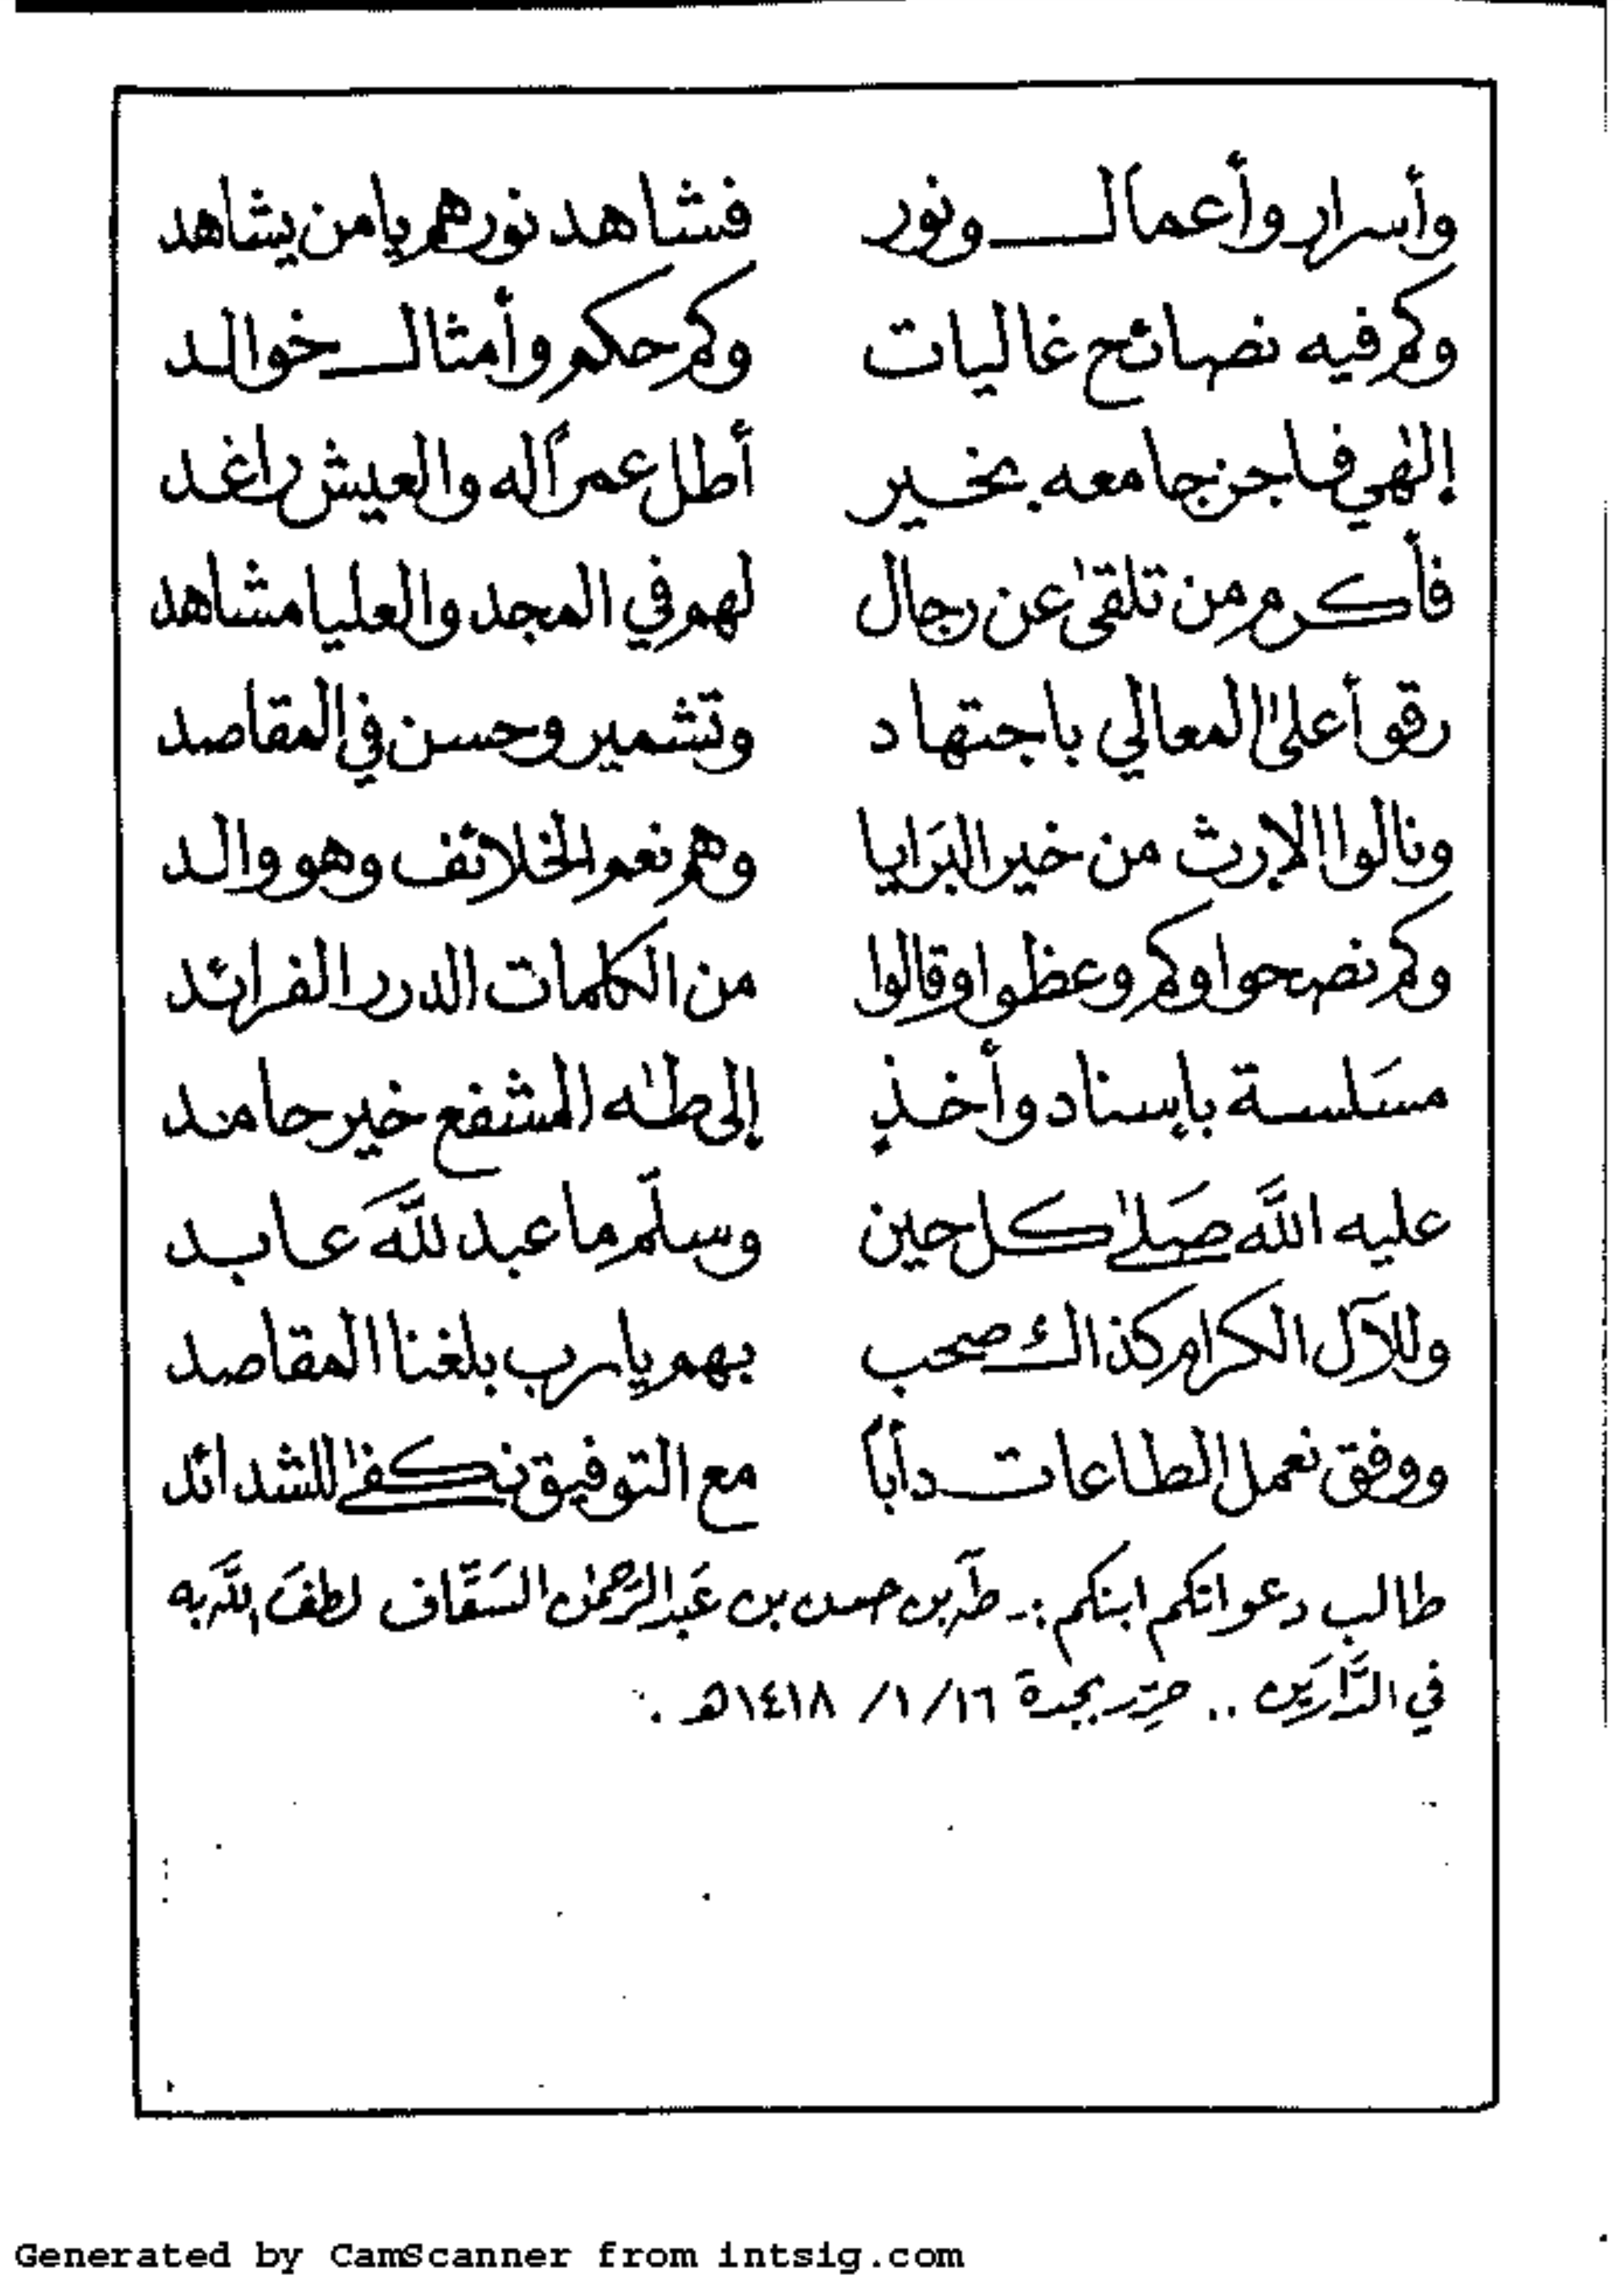 وأسرار وأعمال ونور فشاهد نورهم يا من يشاهد
وكم فيه نصائح غاليات وكم حكم وأمثال خوالد
إلٰهي فاجز جامعه بخير أطل عمراً له والعيش راغد
فأكرم من تلقىٰ عن رجال لهم في المجد والعليا مشاهد
رقو أعلىٰ المعالي باجتهاد وتشمير وحسن في المقاصد
ونالوا الإرث من خير البَرايا وهم نعم الخلائف وهو والد
وكم نصحوا وكم وعظوا وقالوا من الكلمات الدرر الفرائد
مسَلسة بإسناد وأخذٍ إلى طٰه المشفع خير حامد
عليه اللَّه صَلىٰ كل حين وسلَّم ما عبد للَّه عابد
وللآل الكرام كذالك صحب بهم يا رب بلغنا المقاصد
ووفق نعمل الطاعات دأباً مع التوفيق نكفىٰ للشدائد
طالب دعواتكم ابنكم :- طٓه بن حسن بن عَبد الرَّحمٰن السَقَّاف لطفَ اللَّه به
في الدَّارَين .. حرِّر بجدة ١٦ /١/ ١٤١٨هـ :
Generated by CamScanner from intsig.com